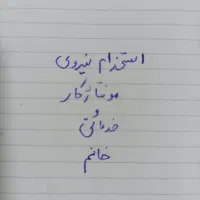 استخدام نیروی
مونتاژکار
و
خدماتی
خانم